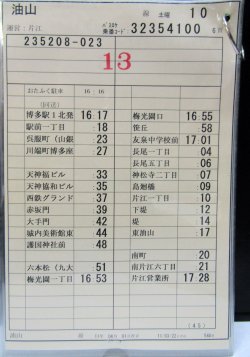 油山 線 土曜 10
運営：片江 乗番コード 32354100
235208-023
13
おたふく駐車 16 16
(回送)
博多駅1北発 16 17 梅光園口 16 55
駅前一丁目 :18 笹丘 :58
呉服町(山銀 :23 友泉中学校前 17 01
川端町博多座 :27 長尾一丁目 :04
長尾五丁目 :06
天神福ビル :33 神松寺二丁目 :07
天神協和ビル :35 島廻橋 :09
西鉄グランド :37 片江一丁目 :10
赤坂門 :39 下堤 :12
大手門 :42 堤 :14
城内美術館東 :44 東油山 :17
護国神社前 :48
南町 :20
六本松(九大 :51 南片江六丁目 :21
梅光園一丁目 16 53 片江営業所 17 28
(45)
油山